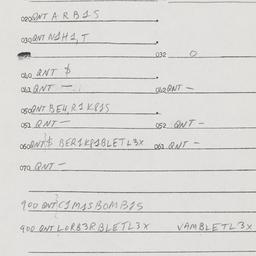 020 QNT A R B 1 S
030 QNT N1H1, T
032 O
040 QNT $
041 QNT — 042 QNT —
050 QNT BE4, R1K81S
051 QNT — 052 QNT —
060 QNT $ BER1KP1BLETL3X 061 QNT —
070 QNT —
900 QNT C1M1SBOMB1S
900 QNT LORB3RBLETL3X VAMBLETL3X